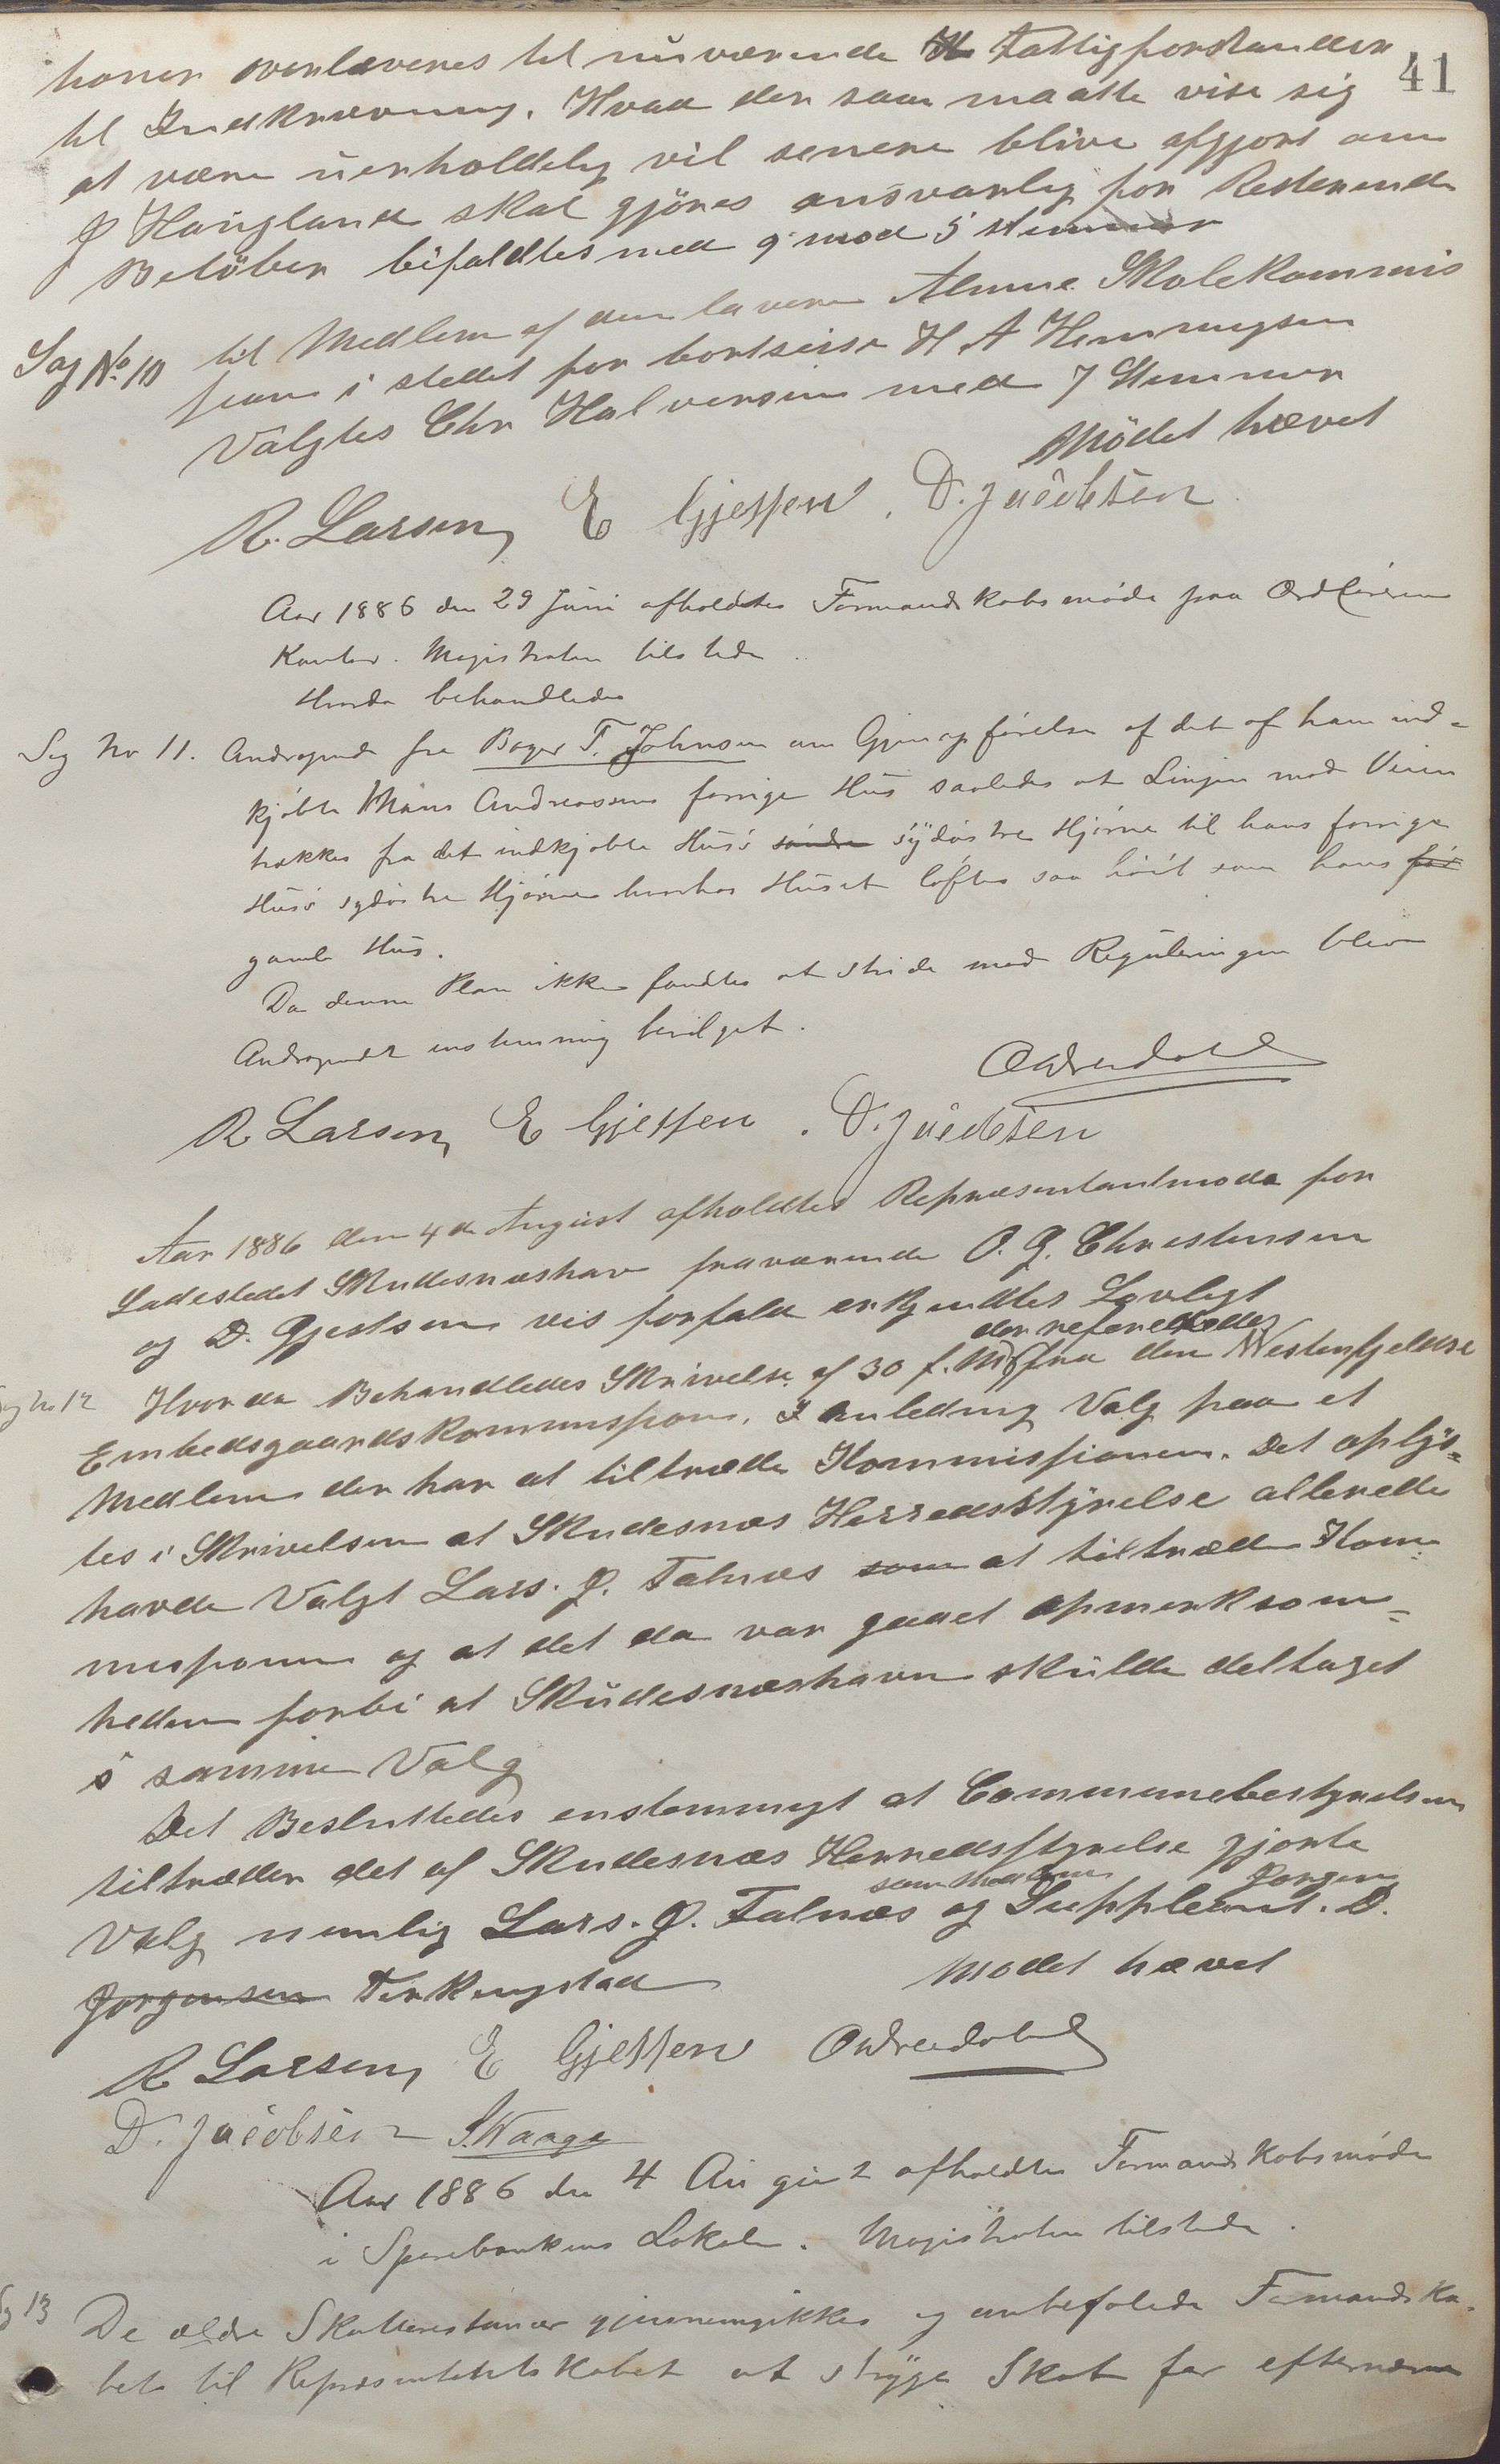 41
haver overlaveres til nuværende Fattigforstander
til Indkrævning. Hvad der saa maatte vise sig
at være uerholdelig vil senere blive afgjort om
J Haugland skal gjöres ansvarlig for Resterende
Belöber bifaldtes med 9 mod 5 stemmer
Sag No. 10 til Medlem af den lavere Almue Skolekommis
sion i stedet for bortreiste H A Henningsen
Valgtes Chr Halversen med 7 Stemmer
Mödet hævet
R. Larsen, E Gjessen. D. Jacobsen
Aar 1886 den 29 Juni afholdtes Formandskabsmöde paa Ordförerens
Kontor. Magistraten tilstede.
Hvorda behandledes
Sag No 11. Andragende fra Bager T. Johnsen om Gjenopförelse af det af ham ind-
kjöbte Måns Andreassens forrige Hus saaledes at Linjen mod Veien
trækkes fra det indkjöbte Hus's söndre sydöstre Hjörne til hans forrige
Hus's sydöstre Hjörne hvorhos Huset löftes saa höit som hans för
gamle Hus.
Da denne Plan ikke fandtes at stride mod Reguleringen blev
Andragendet enstemmig bevilget.
R Larsen, E Gjessen. D. Jacobsen
Aar 1886 den 4de August afholdtes Repræsentantmöde for
Ladestedet Skudesnæshavn fraværende O. G. Christensen
og D. Gjertsen vis forfald erkjendtes Lovligt
der refereredes
Sag No 12 Hvorda Behandledes Skrivelse af 30 f. M. fra den Vestenfjeldske
Embedsgaardskommission, I anledning Valg paa et
Medlem der har at tiltræde Kommissionen. Det oplys-
tes i Skrivelsen at Skudesnæs Herredsstyrelse allerede
havde Valgt Lars. J. Falnæs som at tiltræde Kom-
missionen og at det da var gaaet opmerksom-
heden forbi at Skudesnæshavn skulde deltaget
i samme Valg
Det Besluttedes enstemmigt at Communebestyrelsen
tiltræder det af Skudesnæs Herredsstyrelse gjorte
som Medlem Jorgen
Valg nemlig Lars. J. Falnæs og Suppleant. D.
Jorgensen Ferkingstad Modet hævet
R Larsen, E Gjessen
D. Jacobsen S. Waage
Aar 1886 den 4 August afholdtes Formandskabsmöde
i Sparebankens Lokale. Magistraten tilstede.
Sg 13 De ældre Skatterestancer gjennemgikkes og anbefalede Formandska-
bet til Repræsentantskabet at stryge Skat for efternævnte